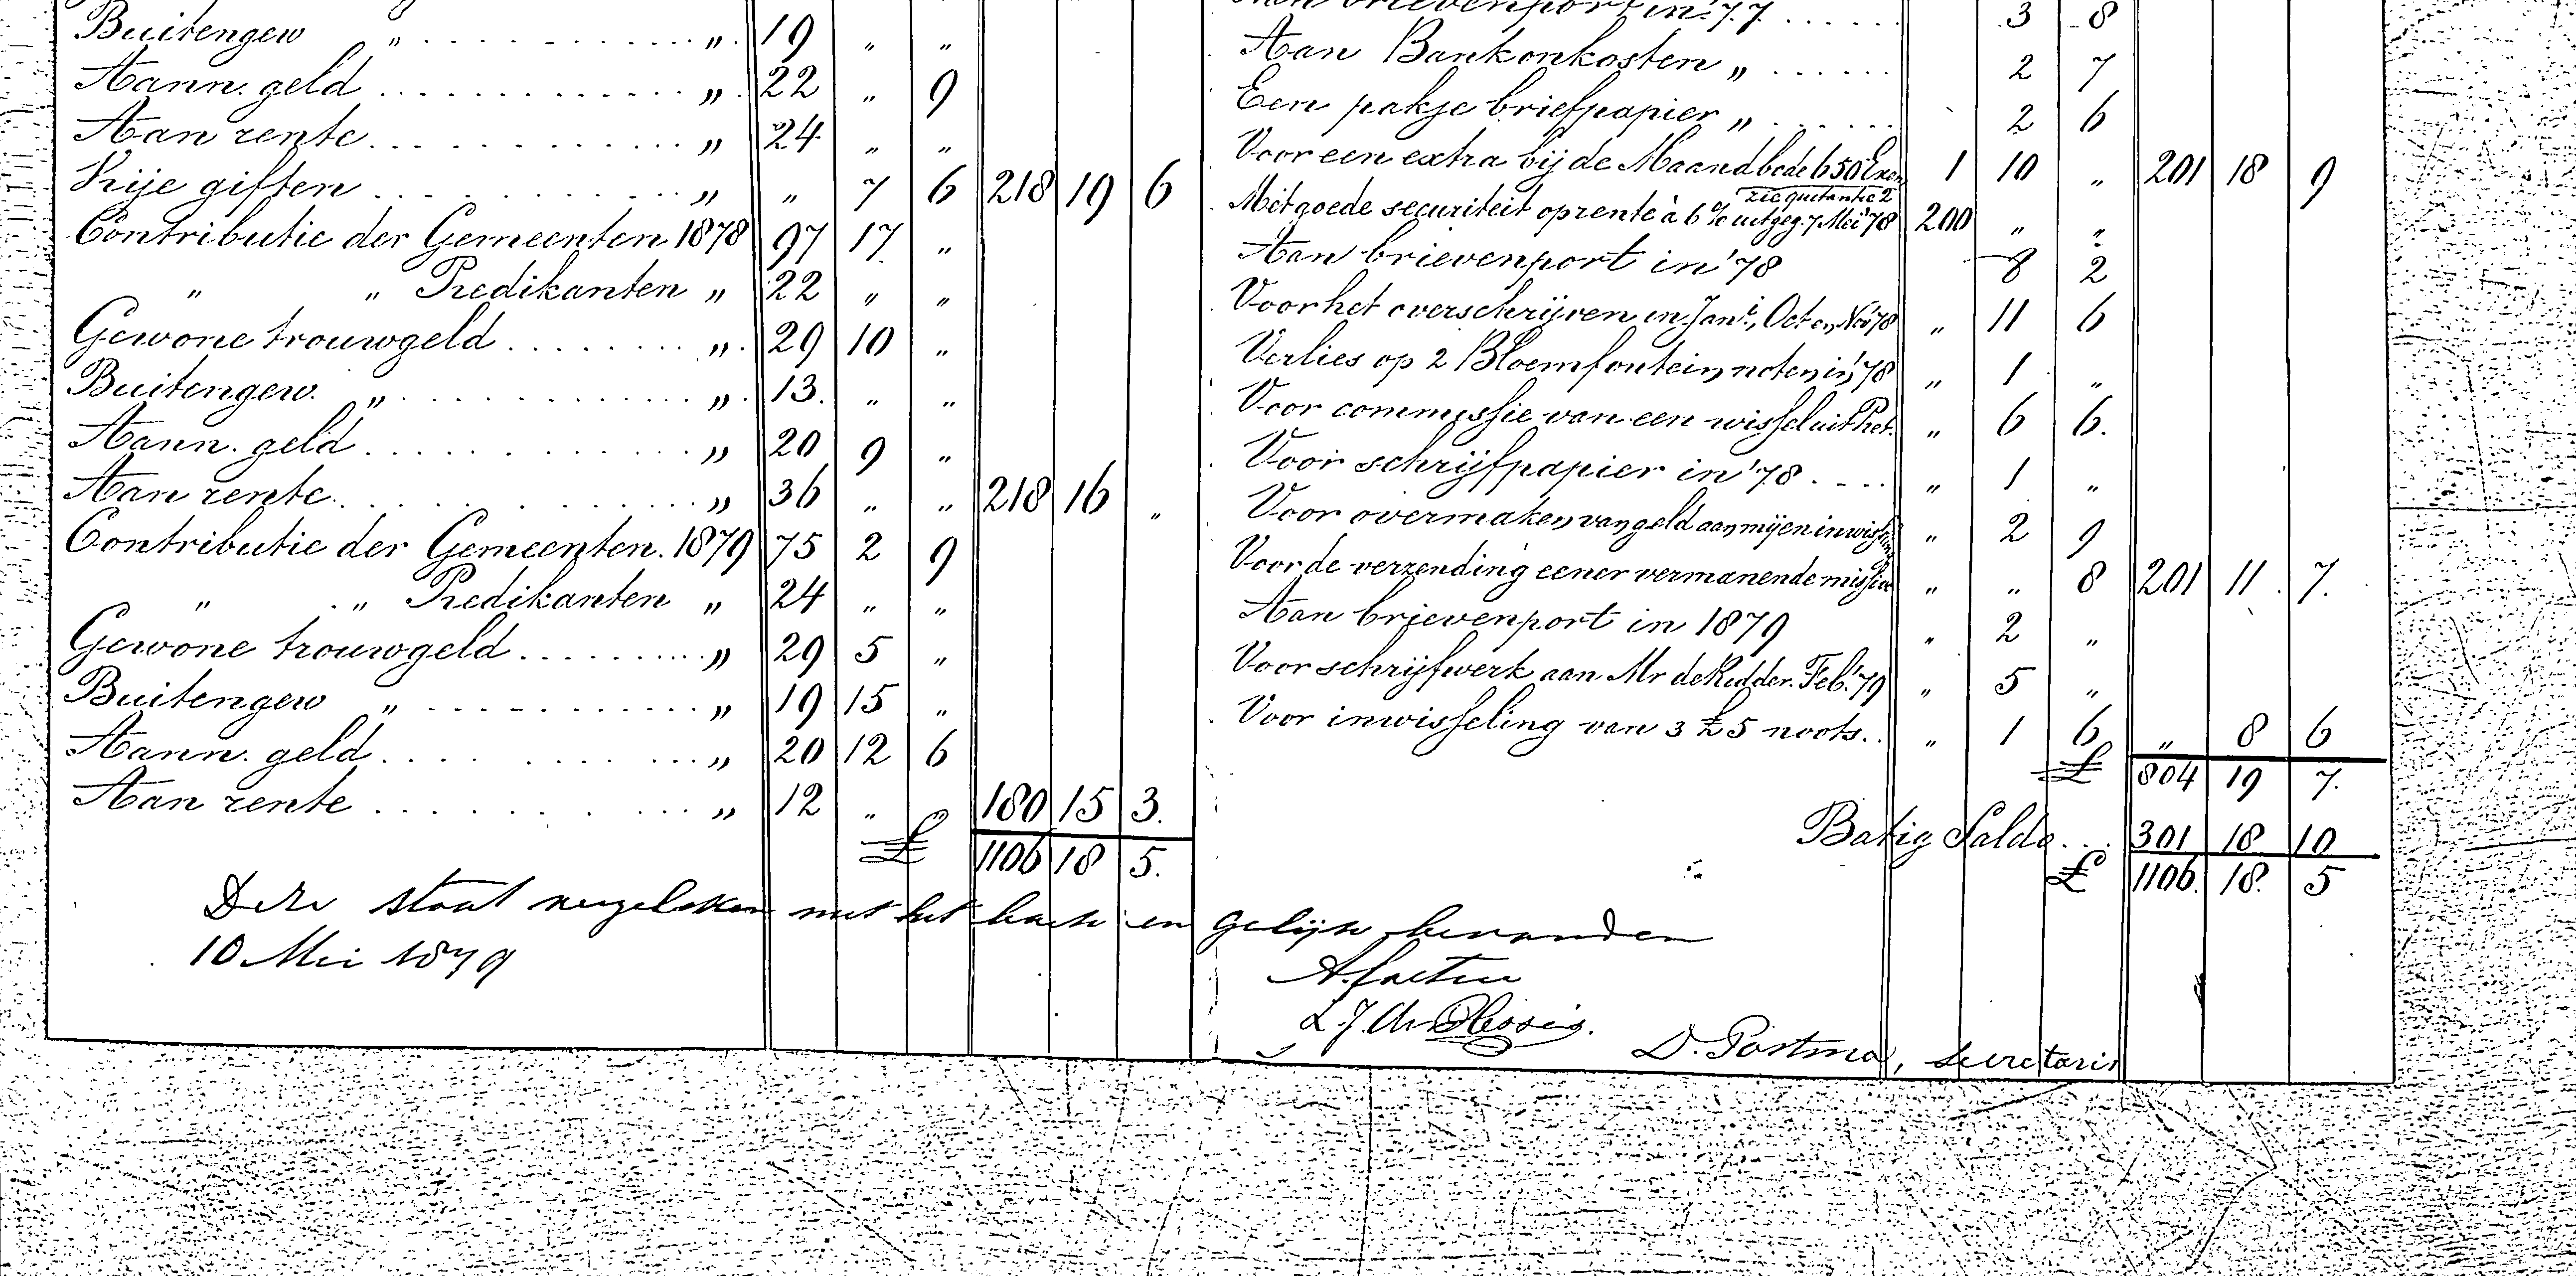 Buitengew „ . . . . „ 19 „ „
Aann. geld . . . . „ 22 „ 9
Aan rente . . . . „ 24 „ „
Vrije giften . . . . „ „ 7 6 218 19 6
Contributie der Gemeenten 1878 97 17 „
„ „ Predikanten „ 22 „ „
Gewone trouwgeld . . . . „ 29 10 „
Buitengew. „ . . . . „ 13. „ „
Aann. geld . . . . „ 20 9 „
Aan rente . . . . „ 36 „ „ 218 16 „
Contributie der Gemeenten. 1879 75 2 9
„ „ Predikanten „ 24 „ „
Gewone trouwgeld . . . . „ 29 5 „
Buitengew „ . . . . „ 19 15 „
Aann. geld . . . . „ 20 12 6
Aan rente . . . . „ 12 „ „ 180 15 3.
£ 1106 18 5.
Aan brievenport in '77 . . . . 3 8
Aan Bankonkosten „ . . . . 2 7
Een pakje briefpapier „ . . . . 2 6
Voor een extra bij de Maandbode 650 Exen 1 10 „ 201 18 9
zie quitantie 2
Met goede securiteit op rente à 6% uitgeg. 7 Mei '78 200 „ „
Aan brievenport in '78 8 2
Voor het overschrijven in Jan., Oct en Nov '78 „ 11 6
Verlies op 2 Bloemfontein noten in '78 „ 1 „
Voor commissie van een wissel uit Pret. „ 6 6.
Voor schrijfpapier in '78 . . . . „ 1 „
Voor overmaken van geld aan mij en inwisseling „ 2 9
Voor de verzending eener vermanende missive „ „ 8 201 11 7.
Aan brievenport in 1879 „ 2 „
Voor schrijfwerk aan Mr de Ridder. Feb. '79 „ 5 „
Voor inwisseling van 3 £5 noots. . „ 1 6 „ 8 6
£ 804 19 7.
Batig Saldo . . . 301 18 10
£ 1106. 18. 5
Deze staat vergeleken met het boek en gelijk bevonden
10 Mei 1879
L. J. du Plessis.
D. Postma, secretaris